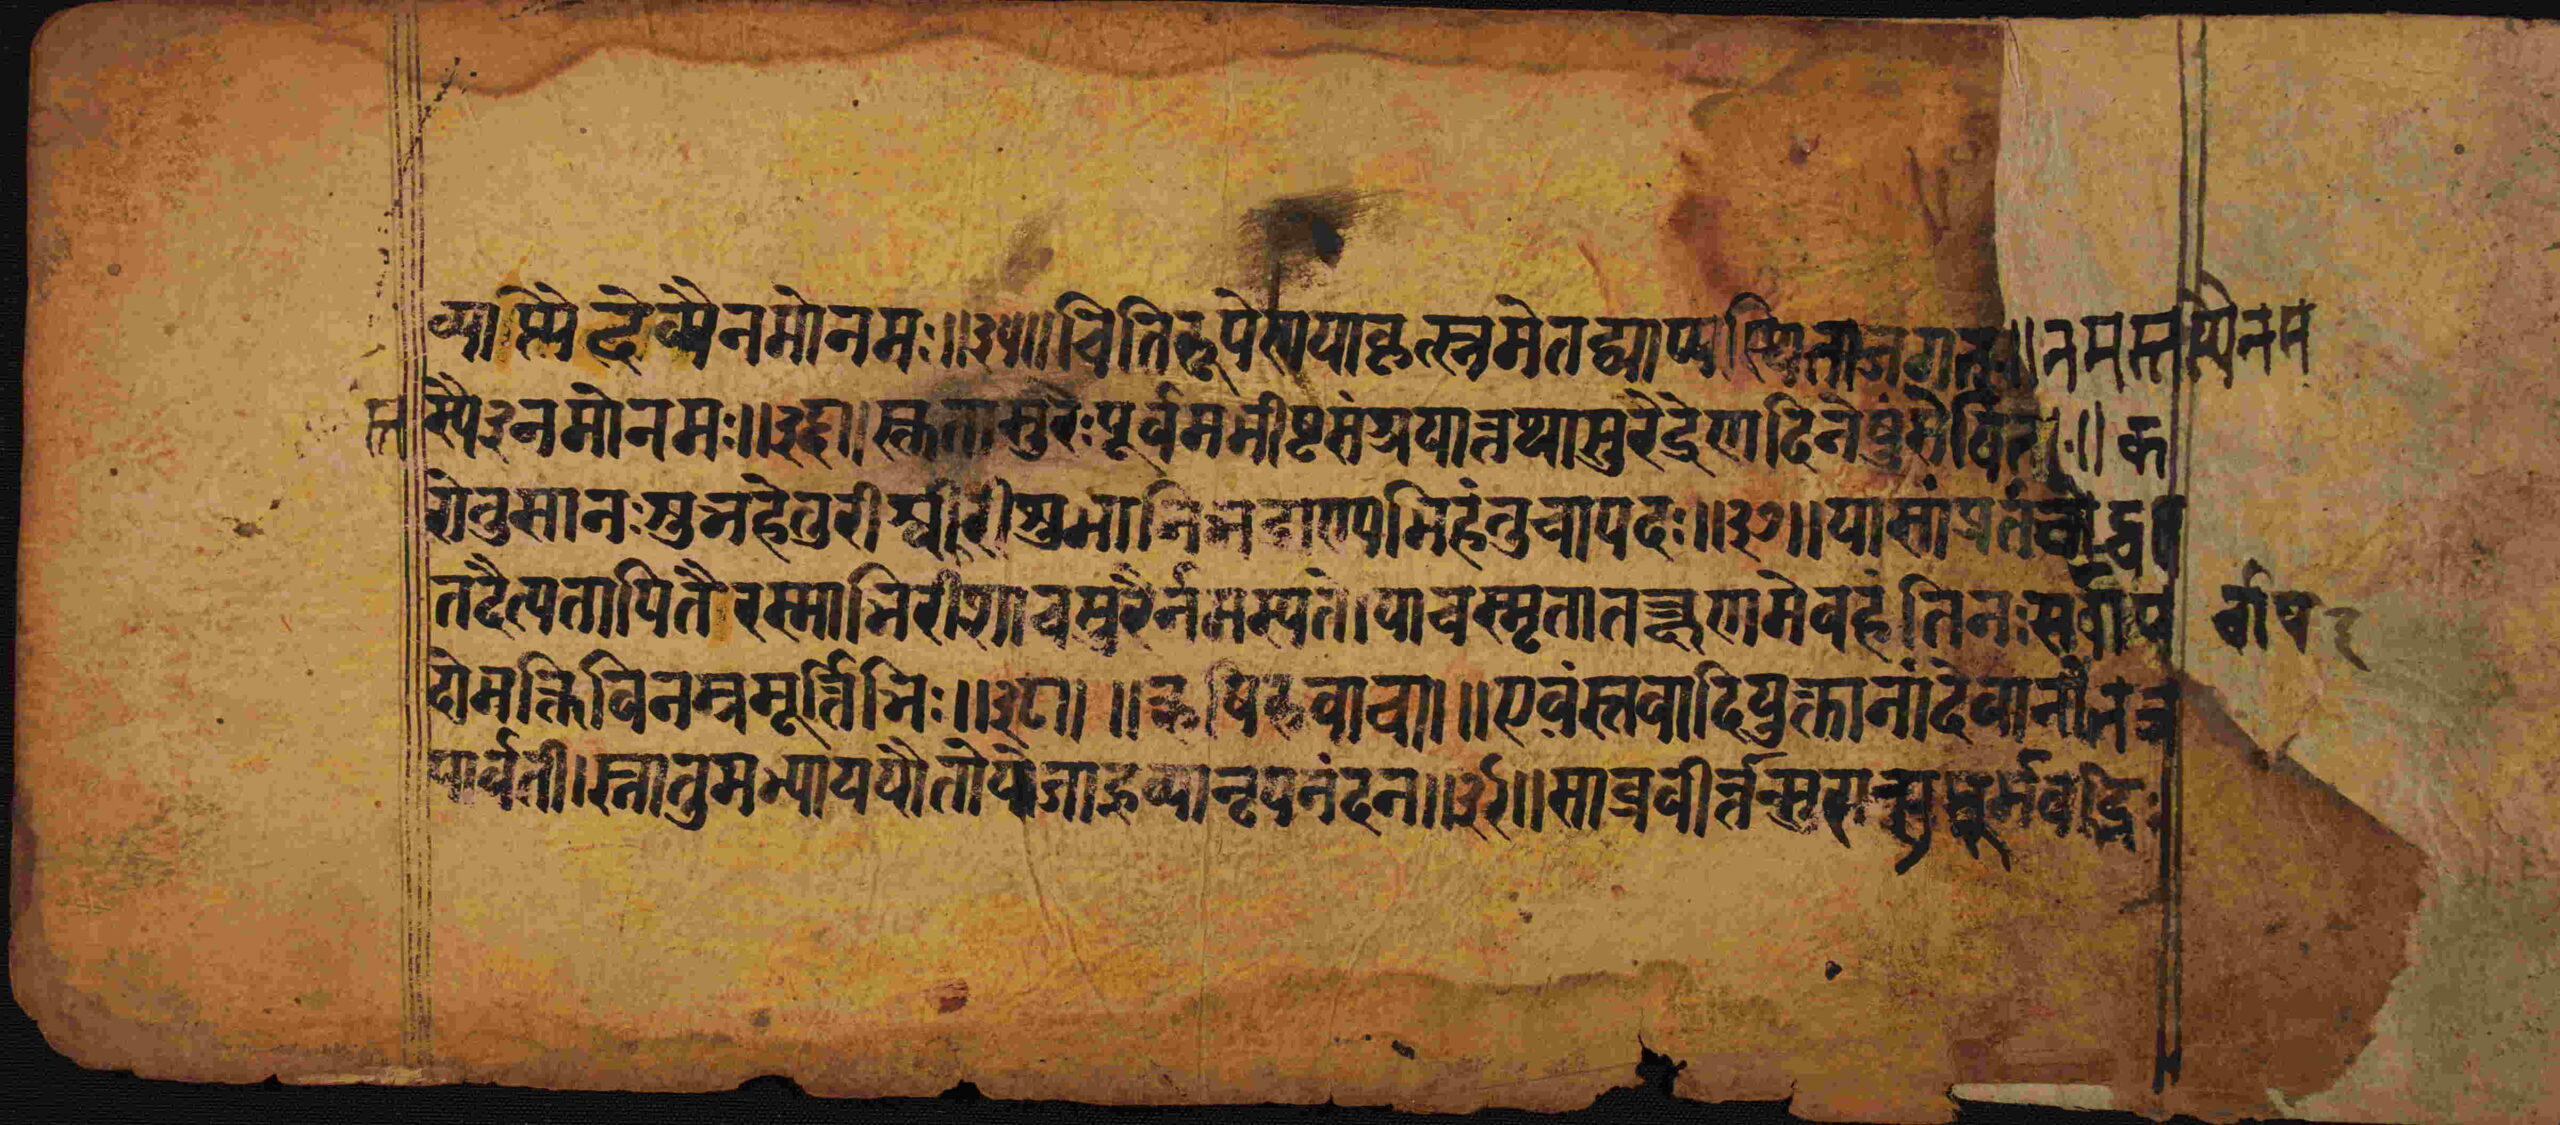 व्याप्त्यै देव्यै नमो नमः॥३५॥चितिरूपेण या कृत्स्नमेतद्व्याप्य स्थिता जगत्॥नमस्तस्यै नम
स्तस्यै३नमो नमः॥३६॥स्तुता सुरैः पूर्वमभीष्टसंश्रयात्तथा सुरेंद्रेण दिनेषु सेविता॥क
रोतु सा नः शुभहेतुरीश्वरी शुभानि भद्राण्यभिहंतु चापदः॥३७॥या सांप्रतं चोद्ध
तदैत्यतापितैरस्माभिरीशा च सुरैर्नमस्यते।या च स्मृता तत्क्षणमेव हंति नः सर्वाप र्वाप
दो भक्तिविनम्रमूर्तिभिः॥३८॥ ॥ऋषिरुवाच॥ ॥एवं स्तवादियुक्तानां देवानां तत्र
पार्वती।स्नातुमभ्याययौ तोये जाह्नव्या नृपनंदन॥३९॥साब्रवीत्तान्सुरान्सुभ्रूर्भवद्भिः